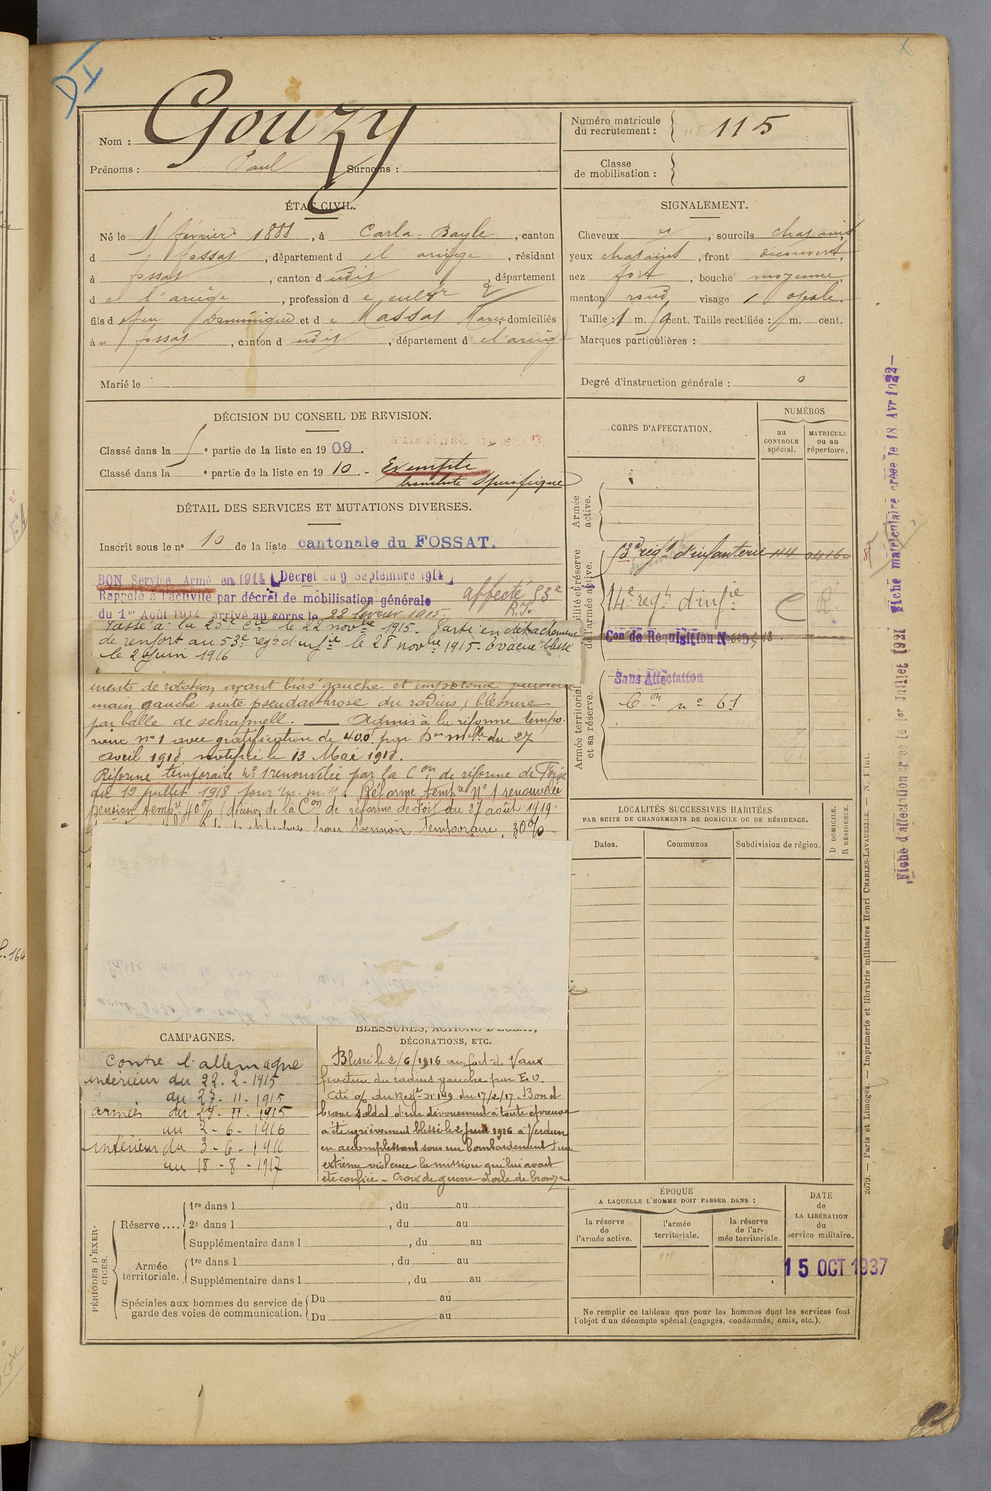 D I
Gouzy
Nom :
Prénoms : Paul Surnoms :
Numéro matricule
du recrutement : 115
Classe
de mobilisation :
ÉTAT CIVIL.
Né le 1 février 1888, à Carla-Bayle, canton
d Fossat, département de l'ariège, résidant
à Fossat, canton dudit, département
de l'ariège, profession de cultr
fils d feu Dominique et de Massat Marie domiciliés
à u Fossat, canton dudit, département de l'ariège
Marié le
SIGNALEMENT.
Cheveux , sourcils chatains
yeux chatains, front découvert,
nez fort, bouche moyenne,
menton rond, visage ovale.
Taille : 1 m. cent. Taille rectifiée : m. cent.
Marques particulières :
Degré d'instruction générale : 0
DÉCISION DU CONSEIL DE REVISION.
Classé dans la 5e partie de la liste en 1909.
Classé dans la e partie de la liste en 1910. - Exempté
bronchite spécifique
DÉTAIL DES SERVICES ET MUTATIONS DIVERSES.
Inscrit sous le n° 10 de la liste cantonale du FOSSAT.
BON Service Armé en 1914 (Décret du 9 Septembre 1914)
Rappelé à l'activité par décret de mobilisation générale affecté 83e
du 1er Août 1914 arrivé au corps le 22 février 1915. R.I.
Passé à la 25e Cie le 22 novbre 1915. Parti en détachement
de renfort au 53e regt d'infie le 28 novbre 1915. Evacué blessé
le 2 juin 1916
ments de rotation avant bras gauche et impotence
main gauche suite pseudarthrose du radius, blessure
par balle de schrapnell. — Admis à la réforme tempo-
raire n° 1 avec gratification de 400f par Don mlle du 27
avril 1918, notifiée le 13 Mai 1918.
Réforme temporaire N° 1 renouvelée par la Con de réforme de Foix
du 19 juillet 1918 pour m. m. Réforme tempre N° 1 renouvelée
pension tempre 40% (décision de la Con de réforme de Foix du 27 août 1919
pour Pension temporaire, 30%
CORPS D'AFFECTATION.
NUMÉROS
au
CONTROLE
spécial.
MATRICULE
ou au
répertoire.
Armée
active.
Disponibilité et réserve
de l'armée active.
Armée territoriale
et sa réserve.
83e régt d'infanterie 114
14e regt d'infie
Con de Requisition N
Sans Affectation
Con n° 61
Fiche d'affectation créée le 1er Juillet 1921
Fiche matriculaire créée le 18 Avr 1922
LOCALITÉS SUCCESSIVES HABITÉES
PAR SUITE DE CHANGEMENTS DE DOMICILE OU DE RÉSIDENCE.
Dates.
Communes
Subdivision de région.
D DOMICILE.
R RÉSIDENCE.
CAMPAGNES.
Contre l'allemagne
intérieur du 22-2-1915
au 27-11-1915
armées du 28-11-1915
au 2-6-1916
intérieur du 3-6-1916
au 18-8-1917
BLESSURES, ACTIONS D'ÉCLAT,
DÉCORATIONS, ETC.
Blessé le 2/6/1916 au fort de Vaux
fracture du radius gauche par E.O.
Cité o/ du Regt N° 149 du 17/2/17. Bon et
brave soldat d'un dévouement à toute épreuve
a été grièvement blessé le 2 juin 1916 à Verdun
en accomplissant sous un bombardement d'une
extrême violence la mission qui lui avait
été confiée - Croix de guerre étoile de bronze
PÉRIODES D'EXERCICES.
Réserve....
1re dans l , du au
2e dans l , du au
Supplémentaire dans l , du au
Armée
territoriale.
1re dans l , du au
Supplémentaire dans l , du au
Spéciales aux hommes du service de
garde des voies de communication.
Du au
Du au
ÉPOQUE
A LAQUELLE L'HOMME DOIT PASSER DANS :
la réserve
de
l'armée active.
l'armée
territoriale.
la réserve
de l'ar-
mée territoriale.
DATE
de
LA LIBÉRATION
du
service militaire.
15 OCT 1937
Ne remplir ce tableau que pour les hommes dont les services font
l'objet d'un décompte spécial (engagés, condamnés, omis, etc.).
2079. — Paris et Limoges. — Imprimerie et librairie militaires Henri CHARLES-LAVAUZELLE.